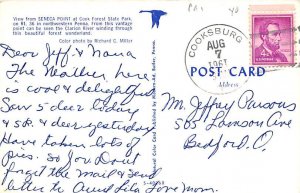 View from SENECA POINT at Cook Forest State Park,
on Rt. 36 in northwestern Penna. From this vantage
point can be seen the Clarion River winding through
this beautiful forest area.
Color photo by Richard C. Miller
Dear Jeff & Mama,
The Weather here
is cool & delightful
Saw 5 deer today
& 58 deer yesterday
Have taken lots of
pics. so you Don't
forget the mail & send
letter to Aunt Lela Love Mom.
COOKSBURG
AUG
7
1961
POST CARD
Address
Mr. Jeffrey Parsons
505 Lamson Ave
Bedford O.